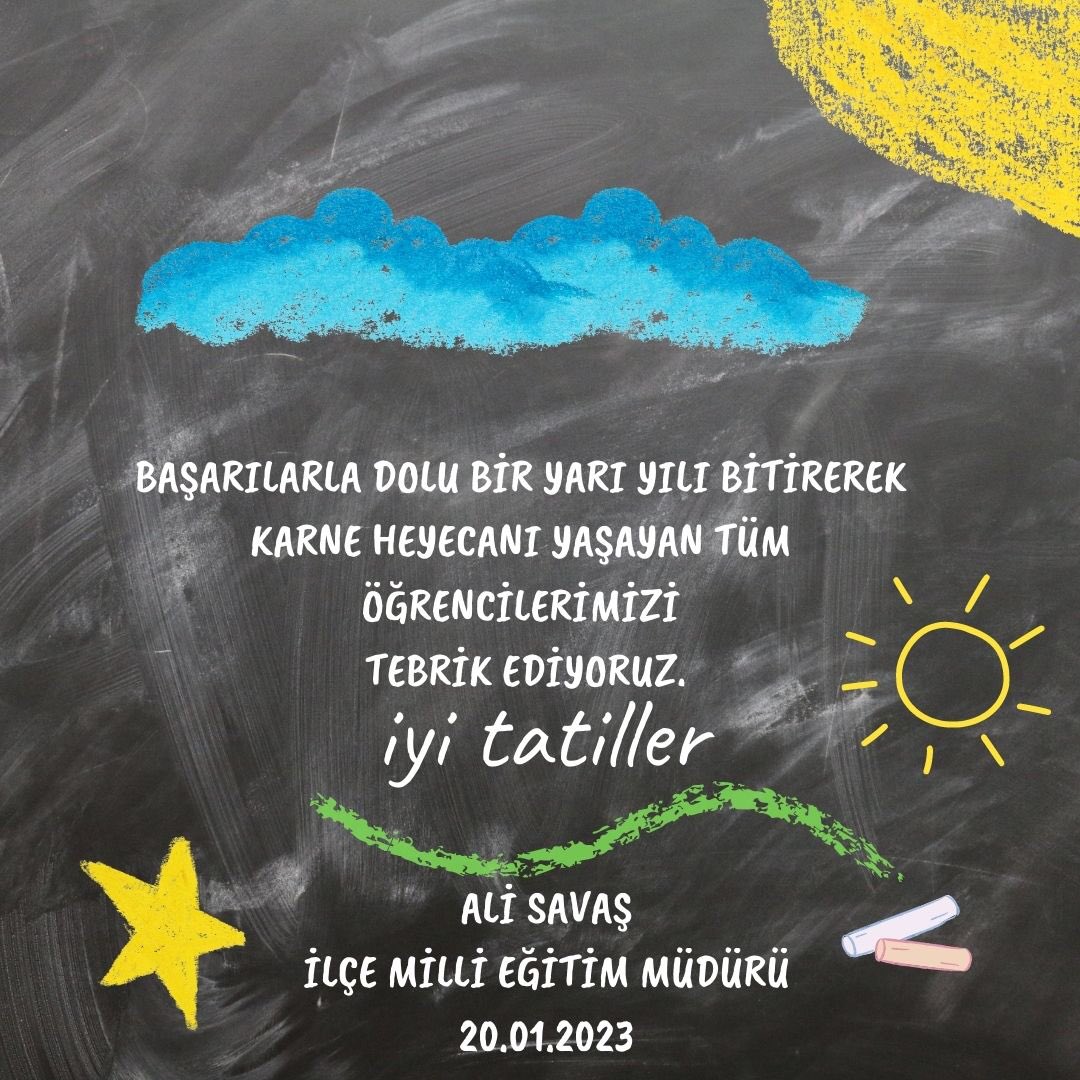 BAŞARILARLA DOLU BİR YARI YILI BİTİREREK
KARNE HEYECANI YAŞAYAN TÜM
ÖĞRENCİLERİMİZİ
TEBRİK EDİYORUZ.
iyi tatiller
ALİ SAVAŞ
İLÇE MİLLİ EĞİTİM MÜDÜRÜ
20.01.2023